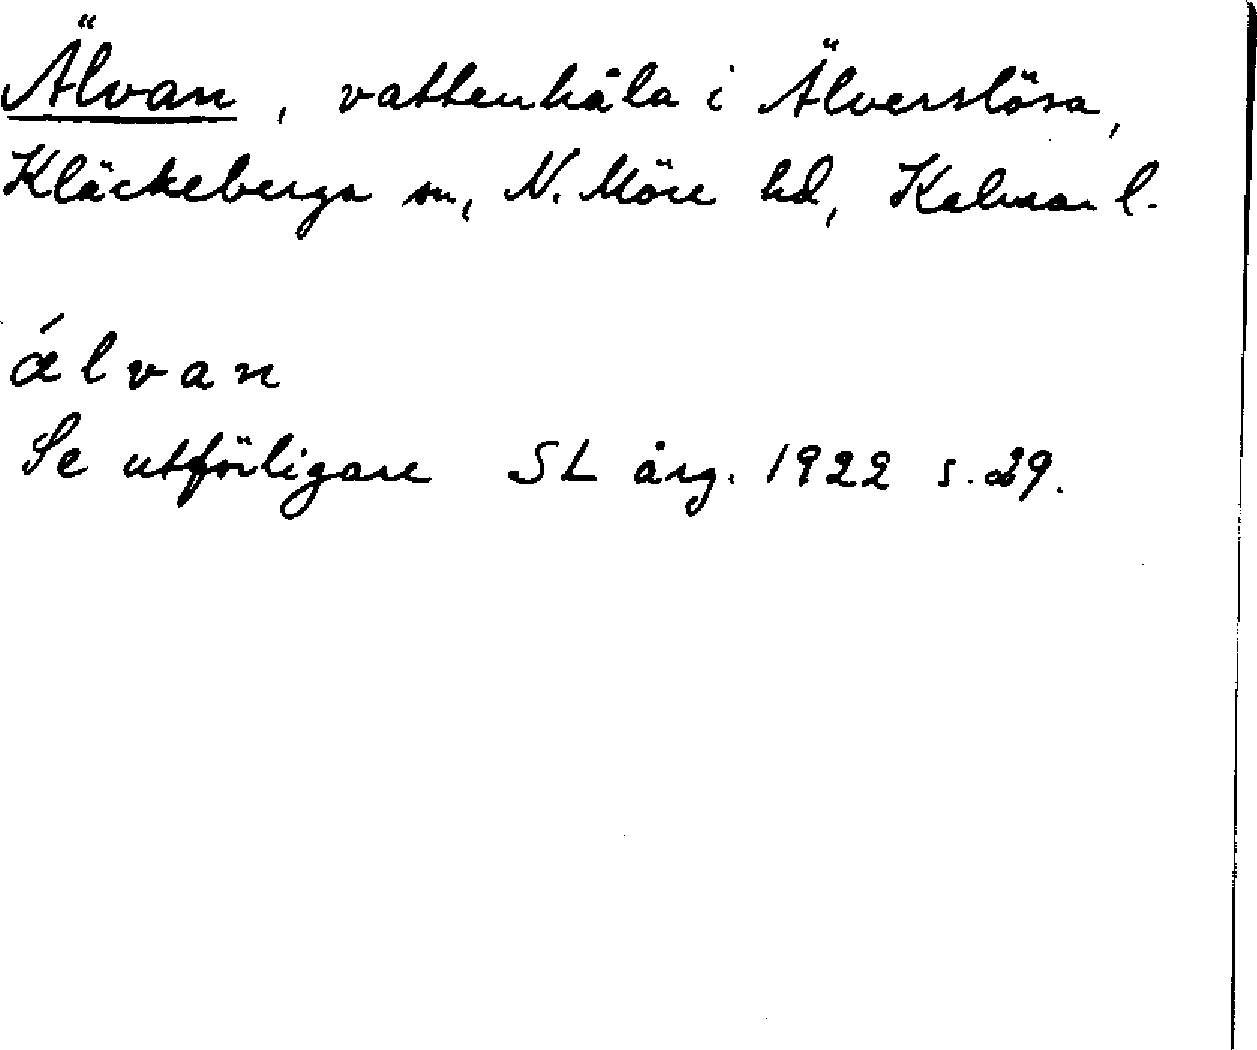 Älvan, vattenhåla i Älverslösa,
Kläckeberga sn, N. Möre hd, Kalmar l.
ǽlvan
Se utförligare SL årg. 1922 s. 29.